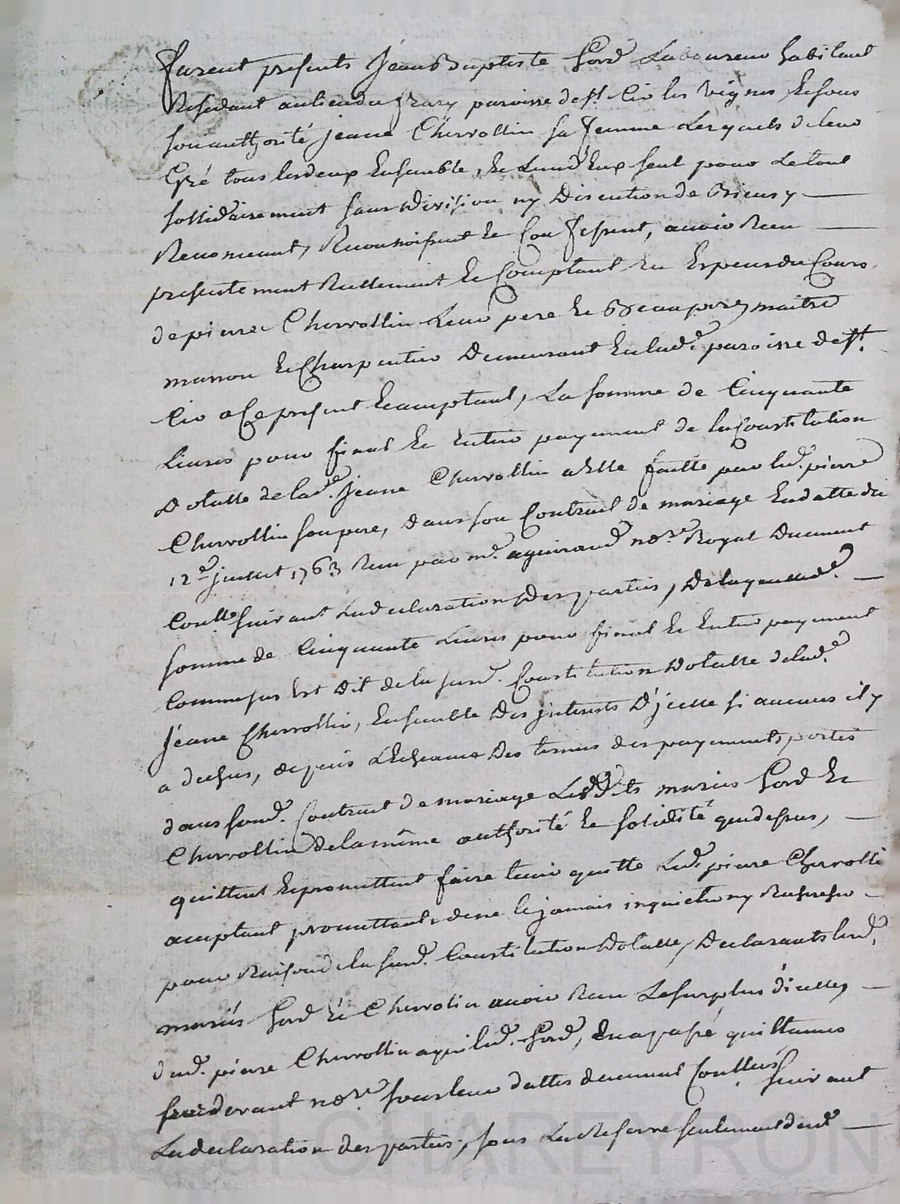 furent presents Jean Baptiste Gord Laboureur habitant
Residant au lieu du paroisse de st. Cir les vignes Et sous
son authorité Jeane Chervollin sa femme Lesquels de leur
Gré tous les deux Ensemble, Et L'un d'Eux seul pour Le tout
sollidairement sans division ny Discution de Biens y
Renoncent, Reconnoissent Et Confessent, avoir Reçu
presentement Reellement Et Comptant En Especes du Cours
de pierre Chervollin Leur pere Et Beaupere, maitre
masson Et Charpentier Demeurant En lad.e paroisse de st.
Cir a Ce present Et acceptant, La somme de Cinquante
Livres pour final Et Entier payement de la Constitution
Dotalle de lad.e Jeane Chervollin a Elle faitte par led. pierre
Chervollin son pere, dans son Contrat de mariage En datte du
12.e juillet 1763 Reçu par me. no.re Royal Duement
Con.llé suivant La declaration des parties, De laquelle
somme de Cinquante Livres pour final Et Entier payement
Comme sus Est Dit de la susd. Constitution Dotalle de lad.e
Jeane Chervollin, Ensemble Des jnterests D'jcelle si aucuns il y
a dechus, depuis L'Echeance Des termes des payements portés
dans sond. Contrat de mariage Lesdits mariés Gord Et
Chervollin de la même authorité Et solidité que dessus,
quittent Et promettent faire tenir quitte Led. pierre Chervollin
acceptant promettants de ne le jamais inquietter ny Rechercher
pour Raison de la susd. Constitution Dotalle, Declarants lesd.
mariés Gord Et Chervolin avoir Reçu Le surplus d'icelle,
dud. pierre Chervollin a qui led. Gord, En a passé quittances
pardevant no.re sous leur dattes duement Conllées suivant
La declaration des parties, sous La Reserve seulement dud.
Pascal CHAREYRON